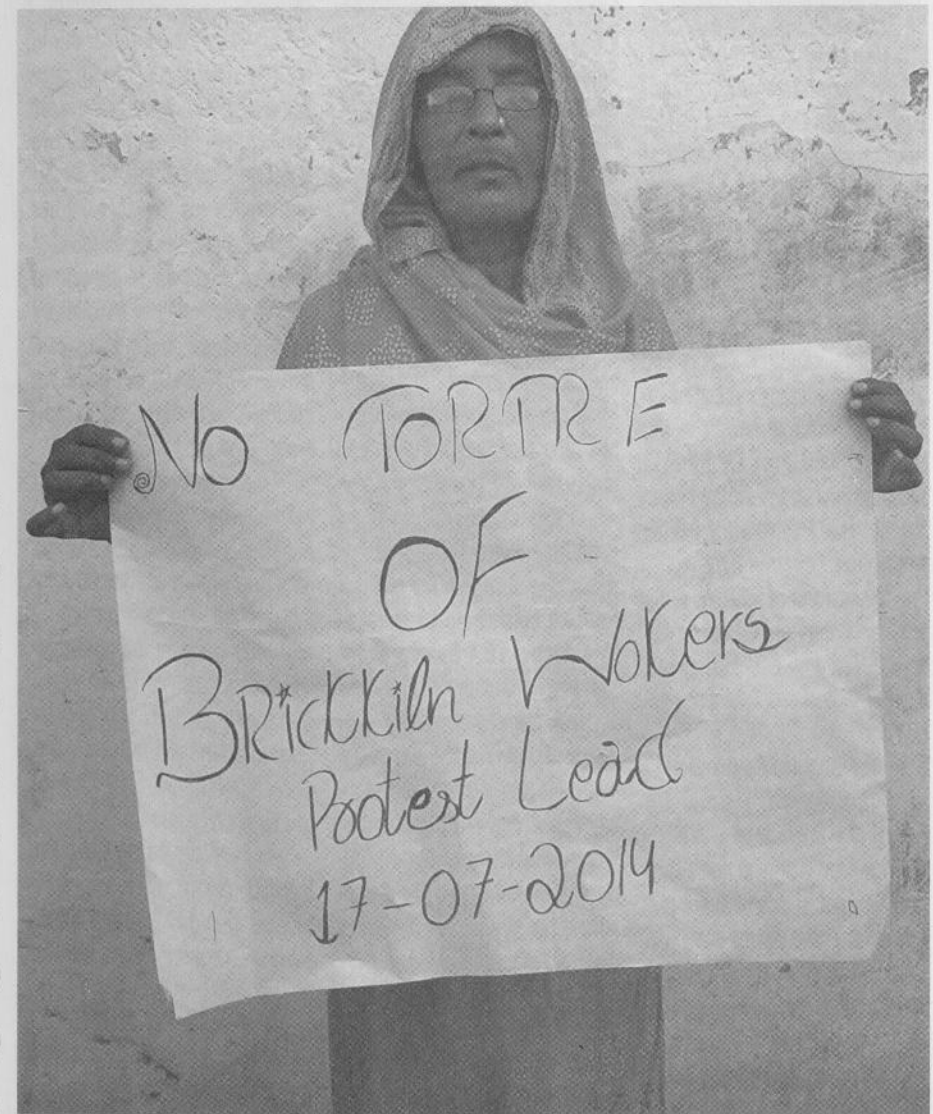 No TORTRE
OF
BRickkiln Wokers
Protest Lead
17-07-2014